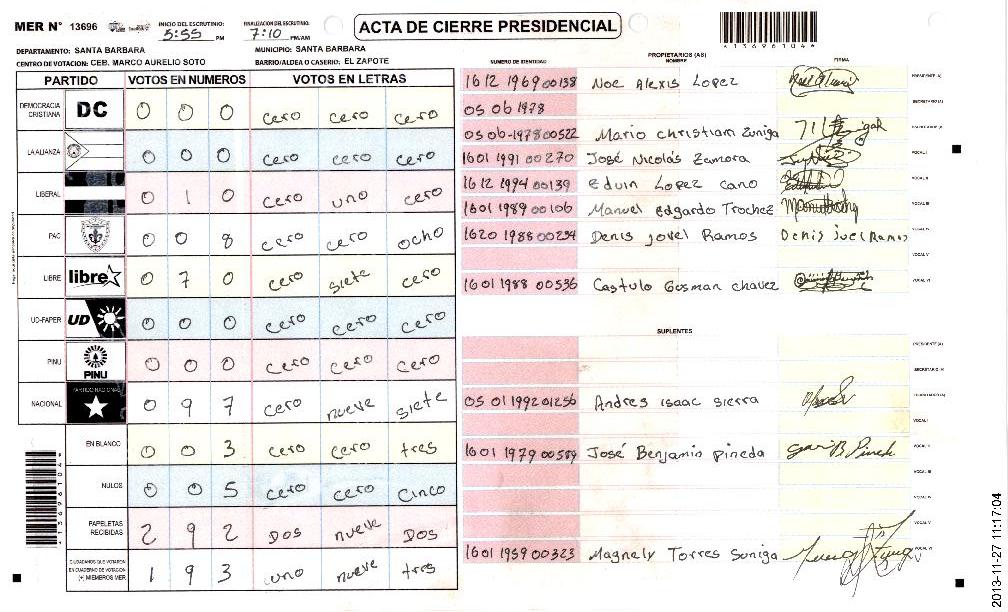 MER N° 13696 INICIO DEL ESCRUTINIO: 5:55 PM FINALIZACION DEL ESCRUTINIO: 7:10 PM/AM
ACTA DE CIERRE PRESIDENCIAL
DEPARTAMENTO: SANTA BARBARA MUNICIPIO: SANTA BARBARA
CENTRO DE VOTACION: CEB. MARCO AURELIO SOTO BARRIO/ALDEA O CASERIO: EL ZAPOTE
PARTIDO VOTOS EN NUMEROS VOTOS EN LETRAS
DEMOCRACIA CRISTIANA DC 0 0 0 cero cero cero
LA ALIANZA 0 0 0 cero cero cero
LIBERAL 0 1 0 cero uno cero
PAC 0 0 8 cero cero ocho
LIBRE libre 0 7 0 cero siete cero
UD-FAPER UD 0 0 0 cero cero cero
PINU PINU 0 0 0 cero cero cero
NACIONAL PARTIDO NACIONAL 0 9 7 cero nueve siete
EN BLANCO 0 0 3 cero cero tres
NULOS 0 0 5 cero cero cinco
PAPELETAS RECIBIDAS 2 9 2 Dos nueve Dos
CIUDADANOS QUE VOTARON EN CUADERNO DE VOTACION (+) MIEMBROS MER 1 9 3 uno nueve tres
PROPIETARIOS (AS)
NUMERO DE IDENTIDAD NOMBRE FIRMA
1612 1969 00138 Noe Alexis Lopez PRESIDENTE (A)
05 06 1978 SECRETARIO (A)
05 06-1978 00522 Mario christian Zuniga
1601 1991 00270 José Nicolás Zamora VOCAL I
1612 1994 00139 Eduin Lopez cano VOCAL II
1601 1989 00106 Manuel Edgardo Trochez VOCAL III
1620 1988 00234 Denis jovel Ramos Denis juel Ramos VOCAL IV
VOCAL V
1601 1988 00536 Castulo Gusman chavez VOCAL VI
SUPLENTES
PRESIDENTE (A)
SECRETARIO (A)
05 01 1992 01256 Andres isaac sierra
VOCAL I
1601 1979 00589 José Benjamin pineda VOCAL II
VOCAL III
VOCAL IV
VOCAL V
1601 1959 00323 Magnely Torres Suniga VOCAL VI
*13696104*
*13696104*
2013-11-27 11:17:04